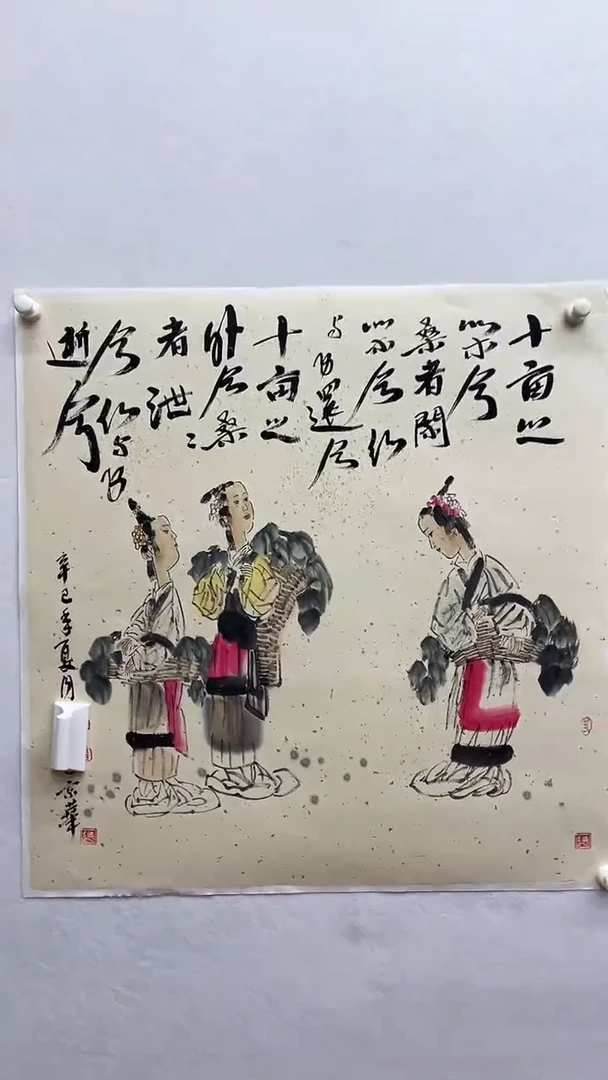 十亩之
间兮
桑者閑
閑兮行
与子還兮
十亩之
外兮桑
者泄〻
兮行与子
逝兮
辛巳季夏月